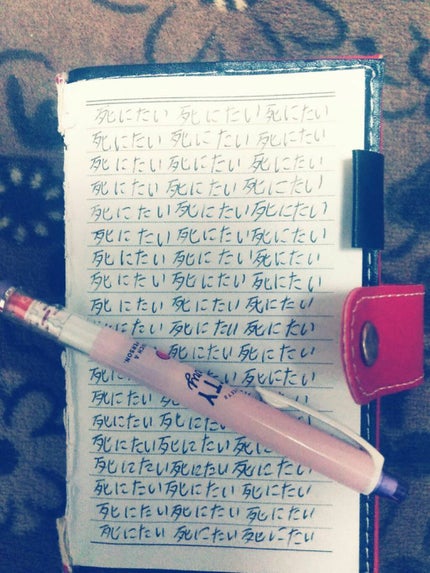 死にたい 死にたい 死にたい
死にたい 死にたい 死にたい
死にたい 死にたい 死にたい
死にたい 死にたい 死にたい
死にたい 死にたい 死にたい
死にたい 死にたい 死にたい
死にたい 死にたい 死にたい
死にたい 死にたい 死にたい
死にたい 死にたい 死にたい
にたい 死にたい 死にたい
死にたい 死にたい
死にたい 死にたい
死にたい
死にたい 死
死にたい 死にたい 死に
死にたい 死にたい 死にたい
死にたい 死にたい 死にたい
死にたい 死にたい 死にたい
死にたい 死にたい 死にたい